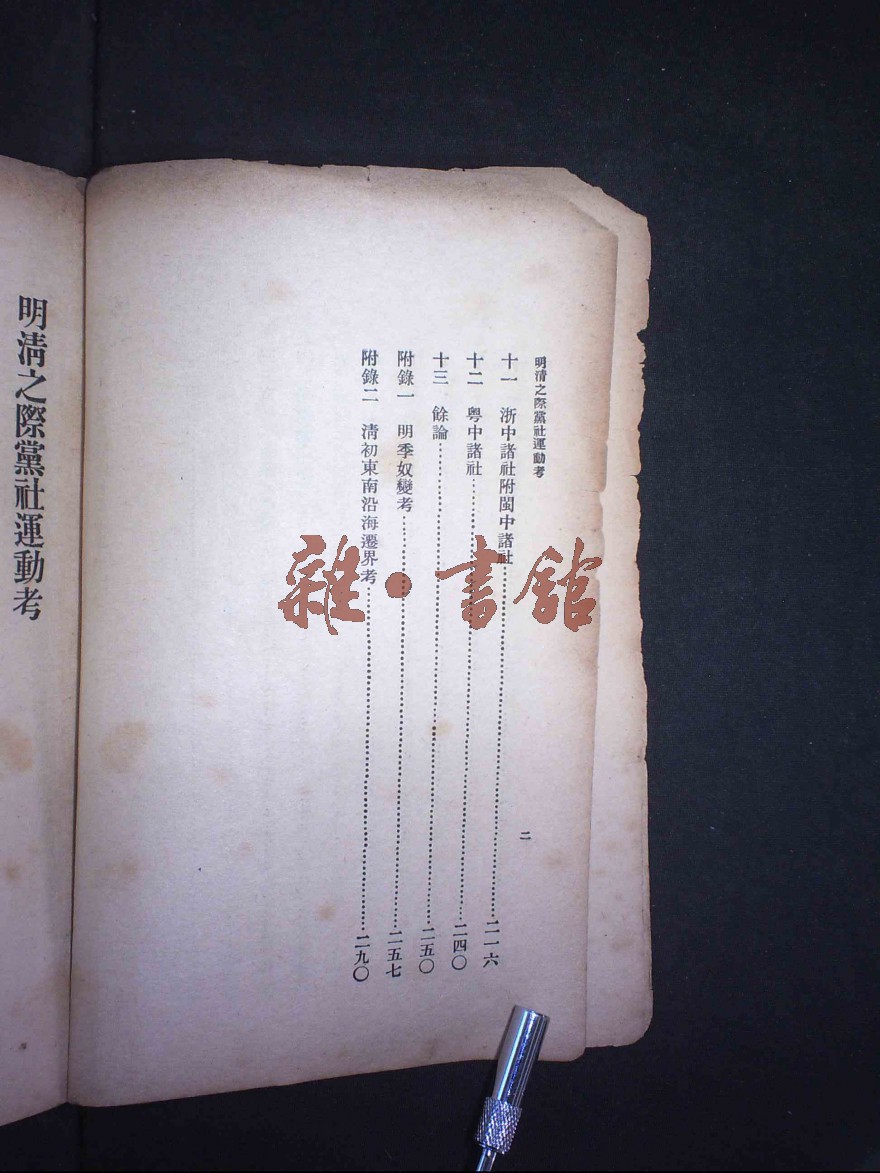 明清之際黨社運動考
二
十一 浙中諸社附閩中諸社……二一六
十二 粵中諸社……二四〇
十三 餘論……二五〇
附錄一 明季奴變考……二五七
附錄二 清初東南沿海遷界考……二九〇
明清之際黨社運動考
雜·書館